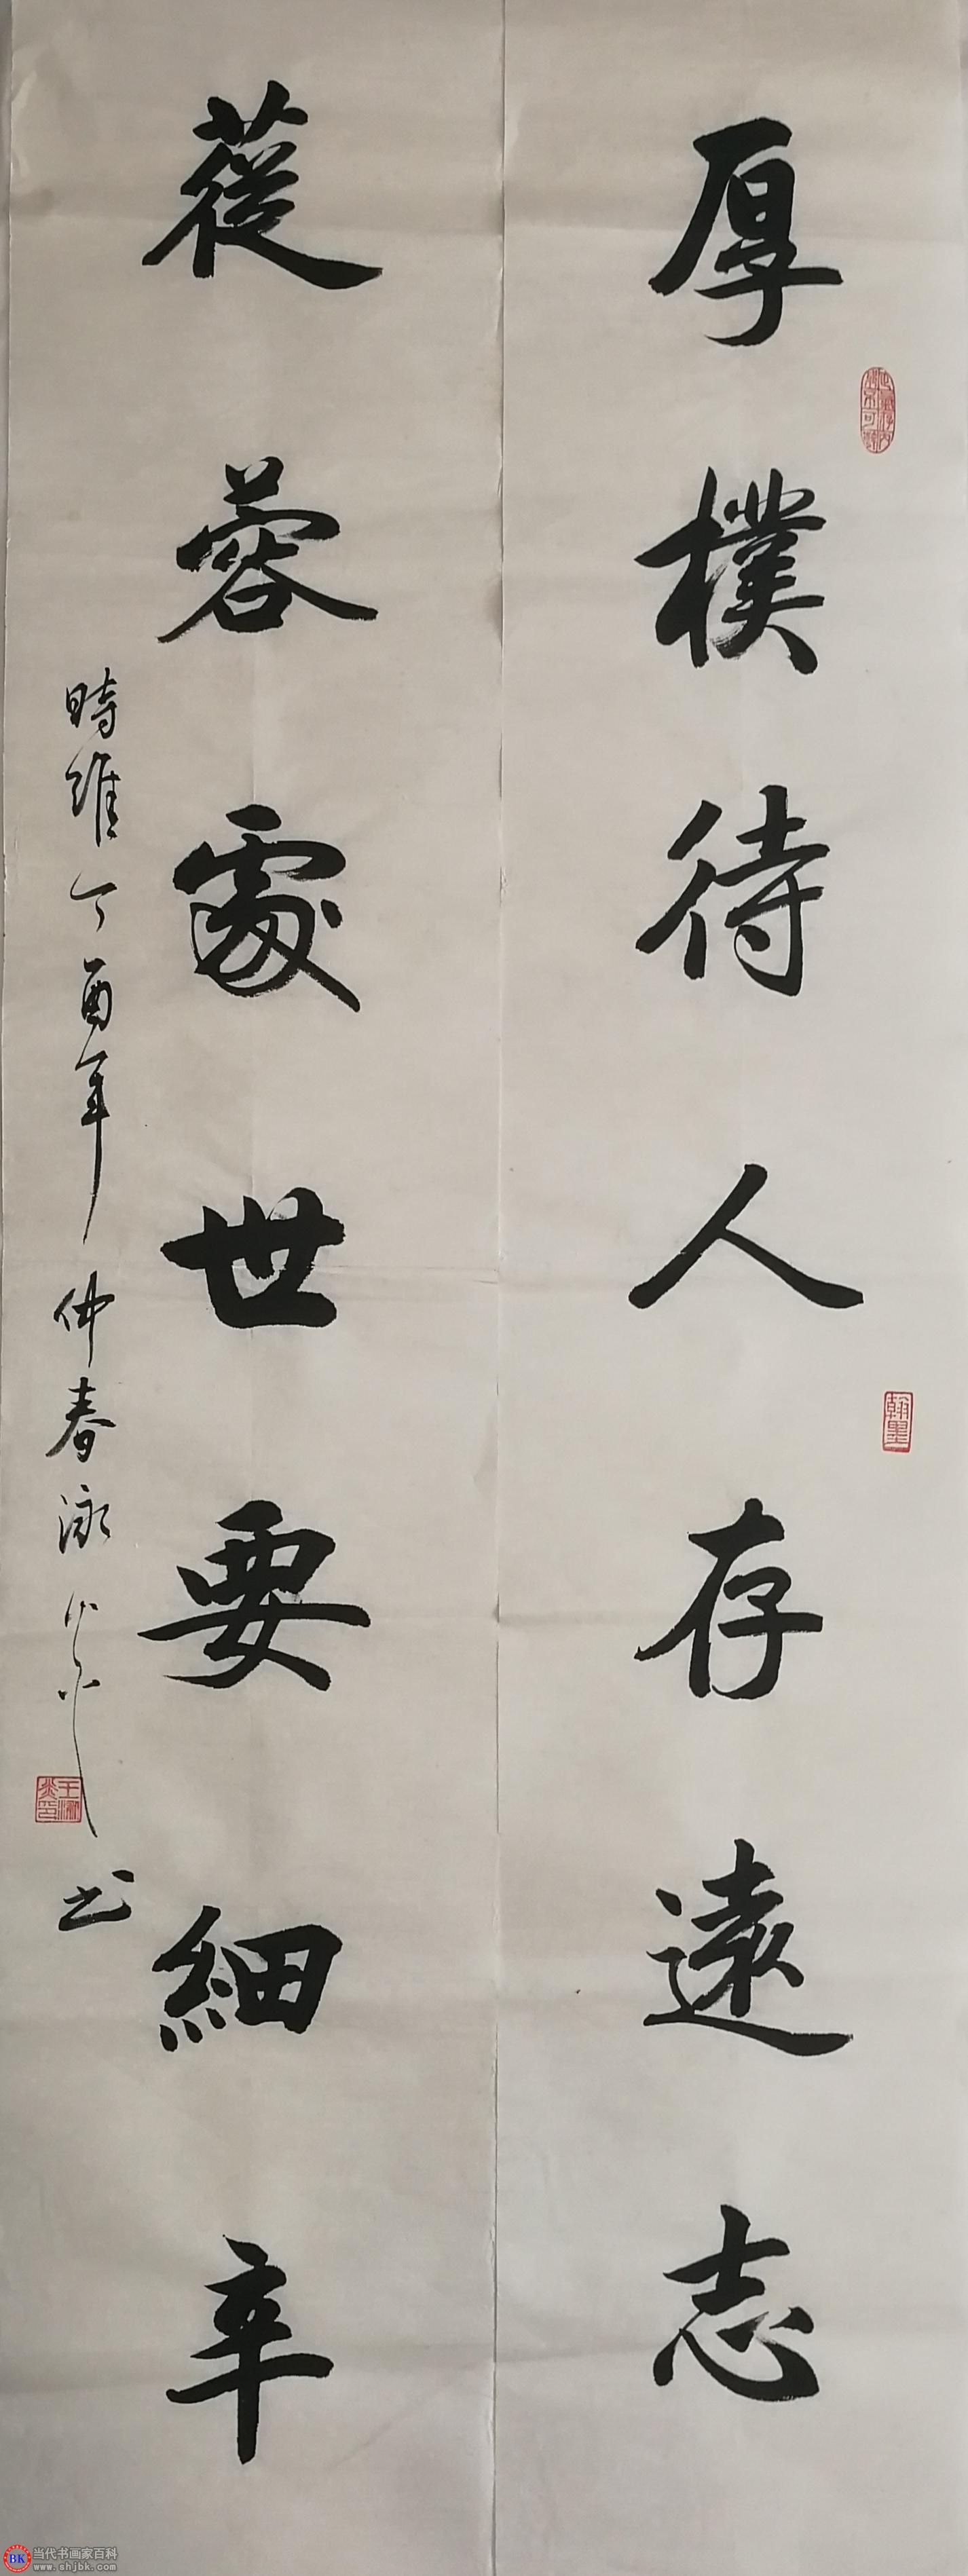 厚樸待人存遠志
蓯蓉處世要細辛
時維丁酉年仲春泳
书
翰墨
当代书画家百科
www.shjbk.com
BK